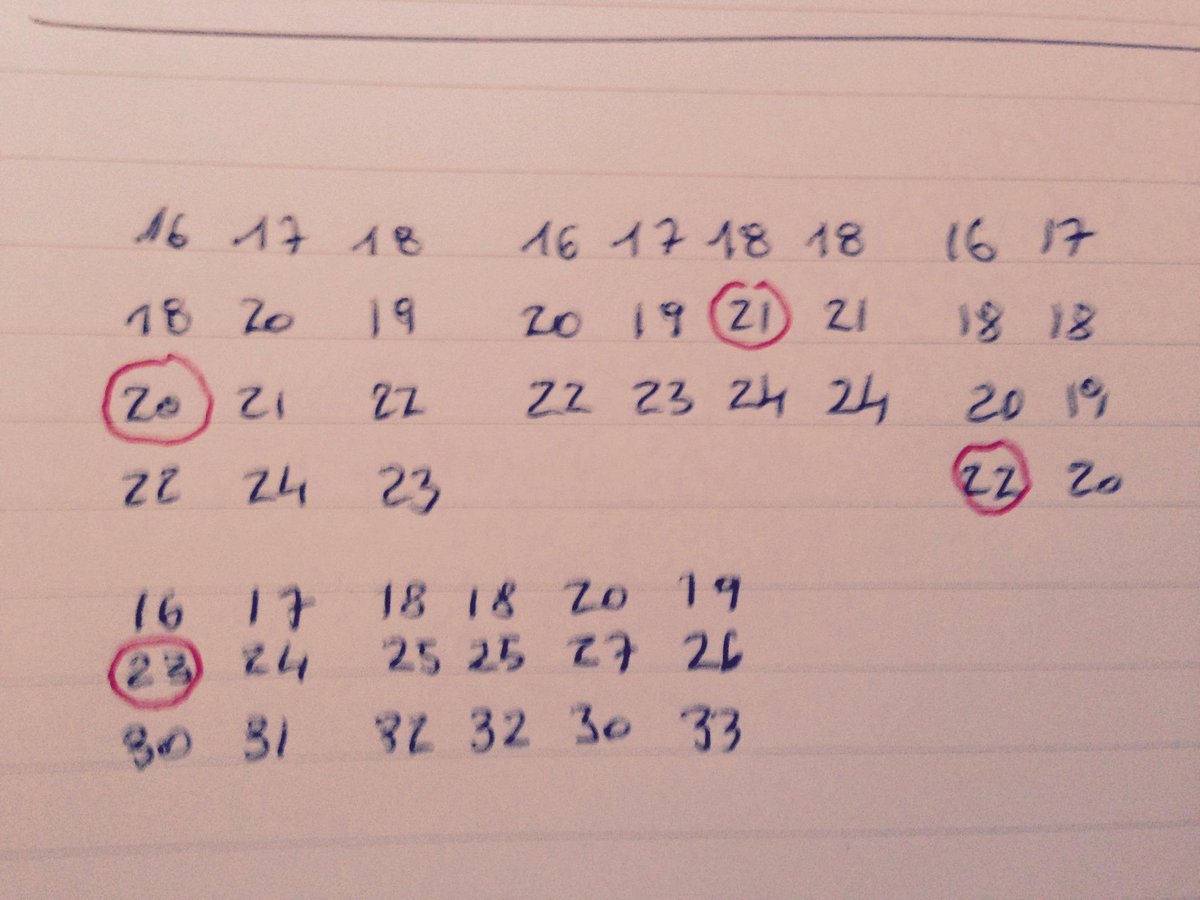 16 17 18 16 17 18 18 16 17
18 20 19 20 19 21 21 18 18
20 21 22 22 23 24 24 20 19
22 24 23 22 20
16 17 18 18 20 19
23 24 25 25 27 26
30 31 32 32 30 33